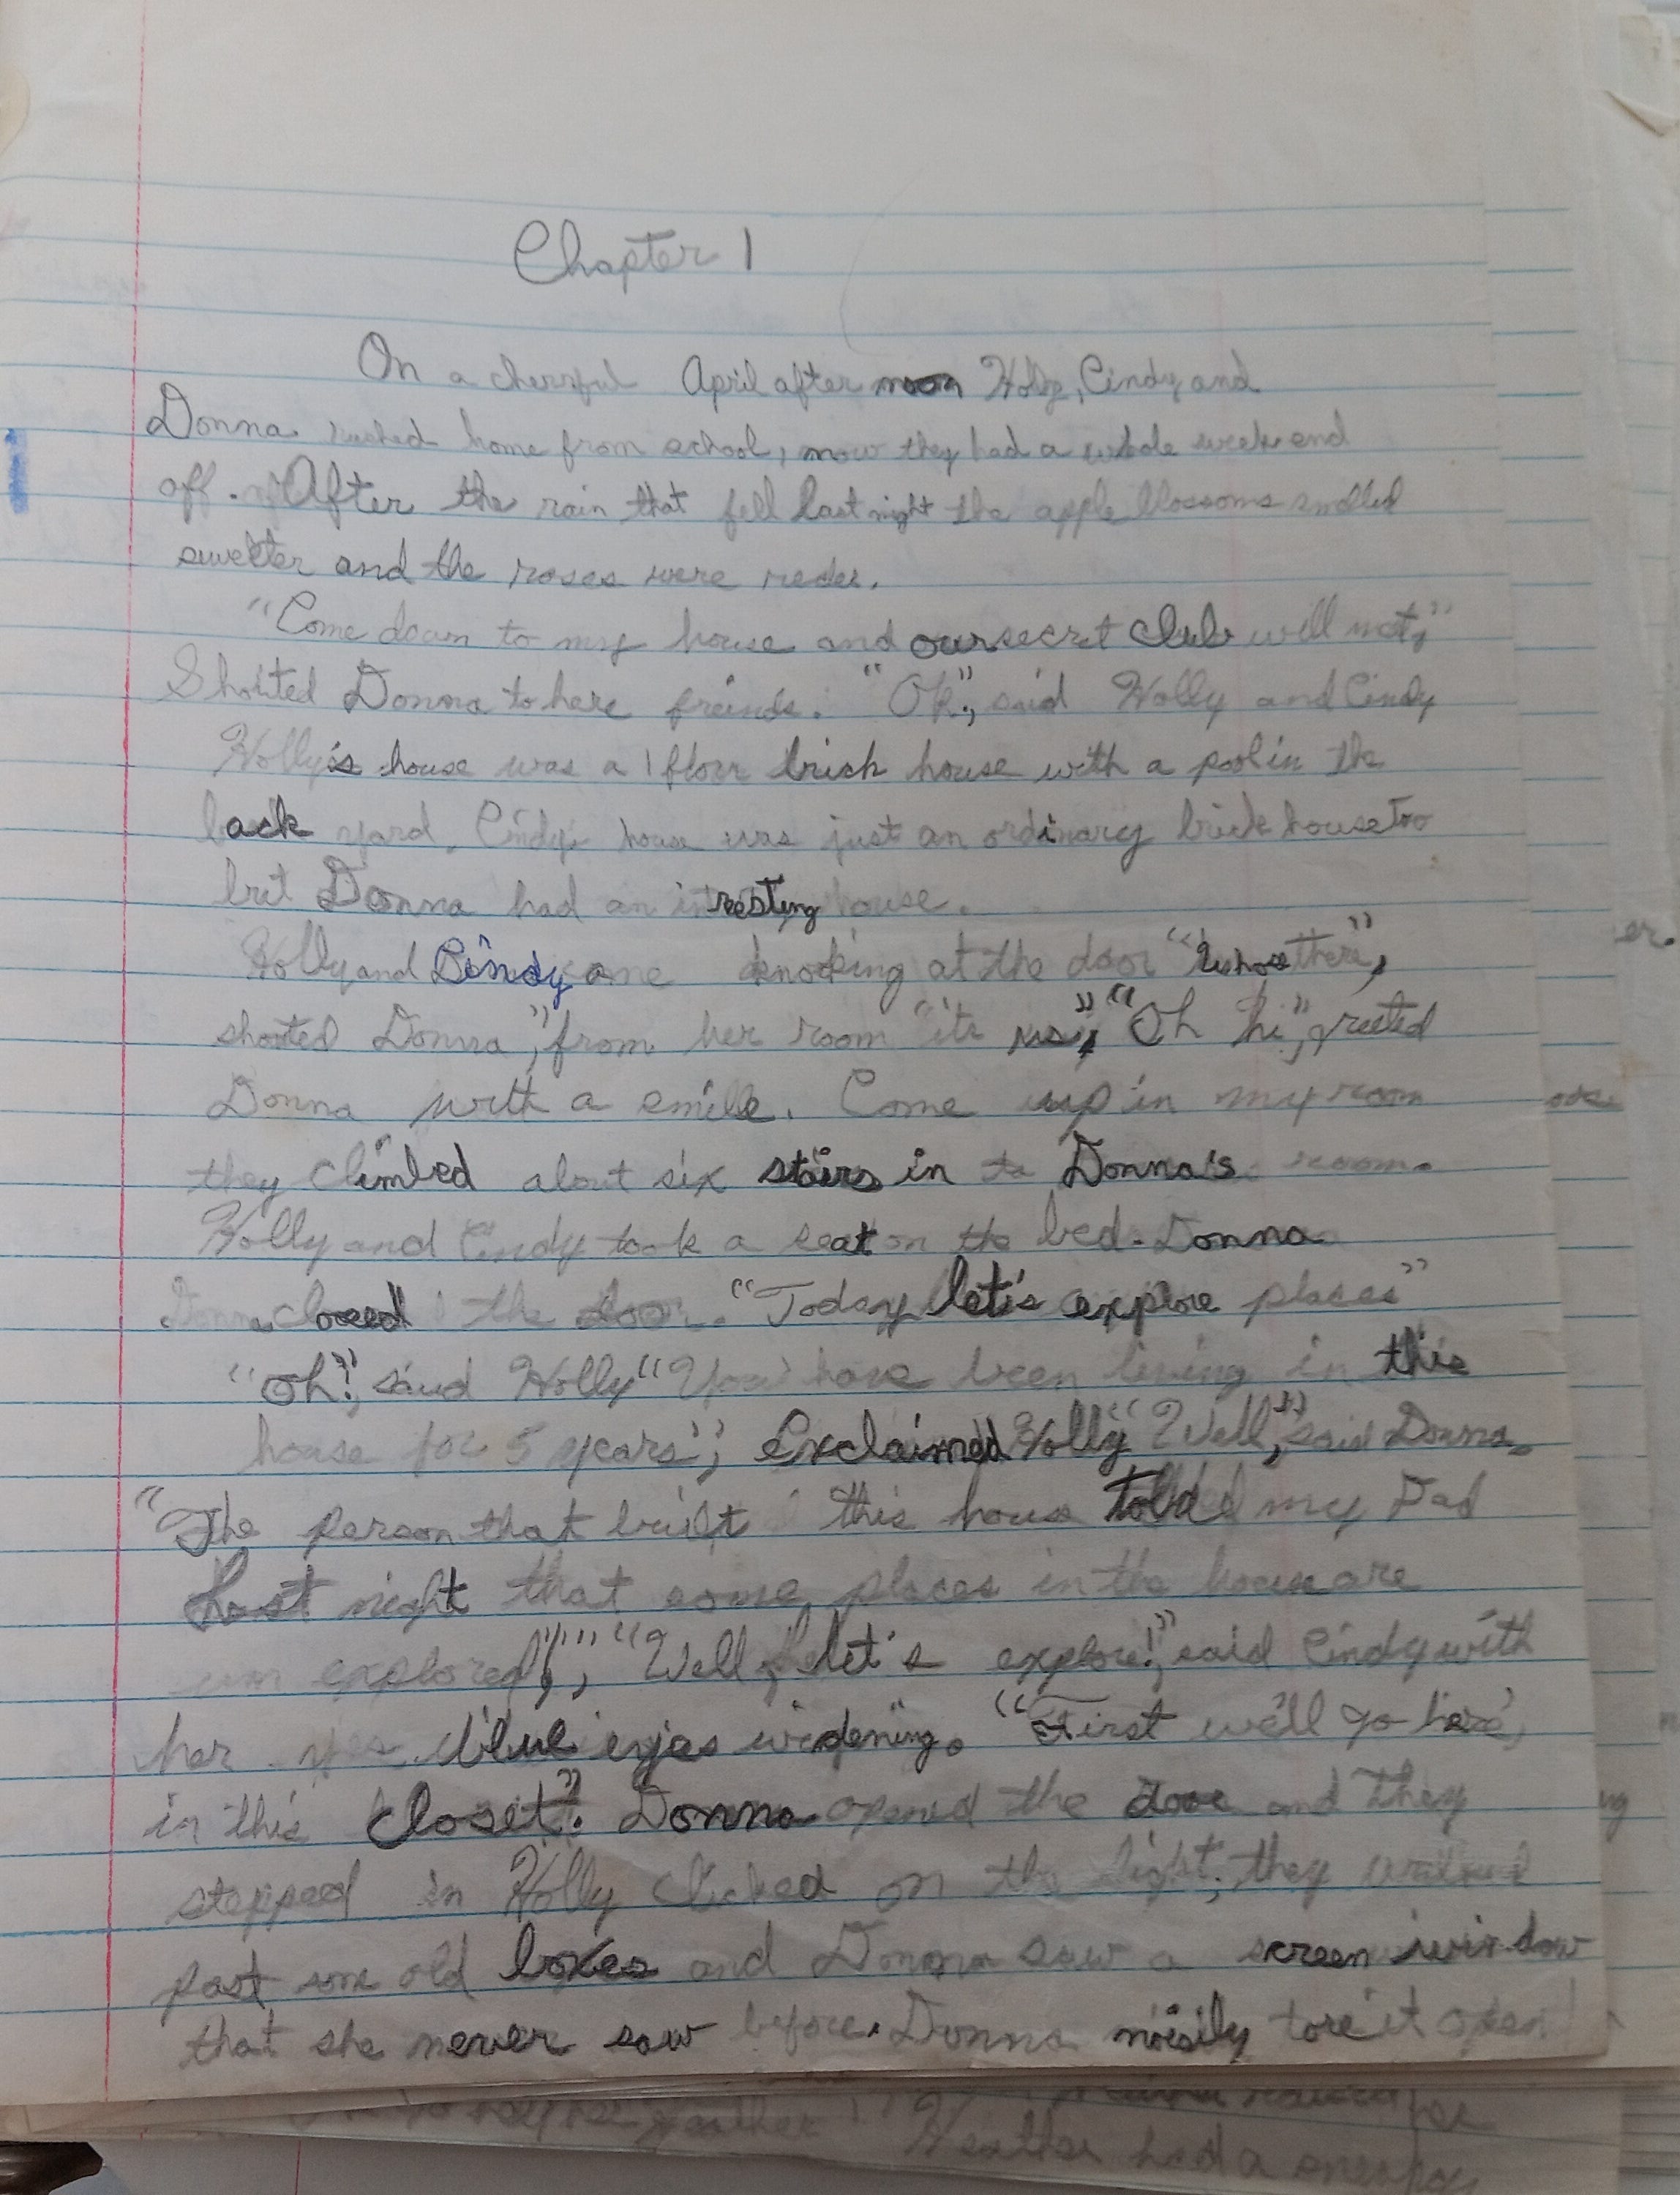 Chapter 1
On a cheerful April after noon Holly, Cindy and
Donna rushed home from school, now they had a whole week end
off. After the rain that fell last night the apple blossoms smelled
sweetter and the roses were reder.
"Come down to my house and our secret Club will met,"
Shouted Donna to here freinds. "Ok", said Holly and Cindy
Holly's house was a 1 floor brick house with a pool in the
back yard. Cindy's house was just an ordinary brick house too
but Donna had an intresting house.
Holly and Cindy knocking at the door "whose there",
shouted Donna", from her room "its us", "Oh hi", greeted
Donna with a smile. Come up in my room
they climbed about six stairs in to Donna's room.
Holly and Cindy took a seat on the bed. Donna
Donna closed the door. "Today let's explore places"
"Oh!", said Holly "You have been living in this
house for 5 years", Exclaimed Holly "Well," said Donna.
"The person that built this house told my Dad
Last night that some places in the house are
un explored!", "Well, let's explore!", said Cindy with
her blue eyes widening. "First we'll go here,
in this closet". Donna opened the door and they
stepped in Holly clicked on the light, they
past some old boxes and Donna saw a screen window
that she never saw before. Donna noisily tore it open
Heather had a